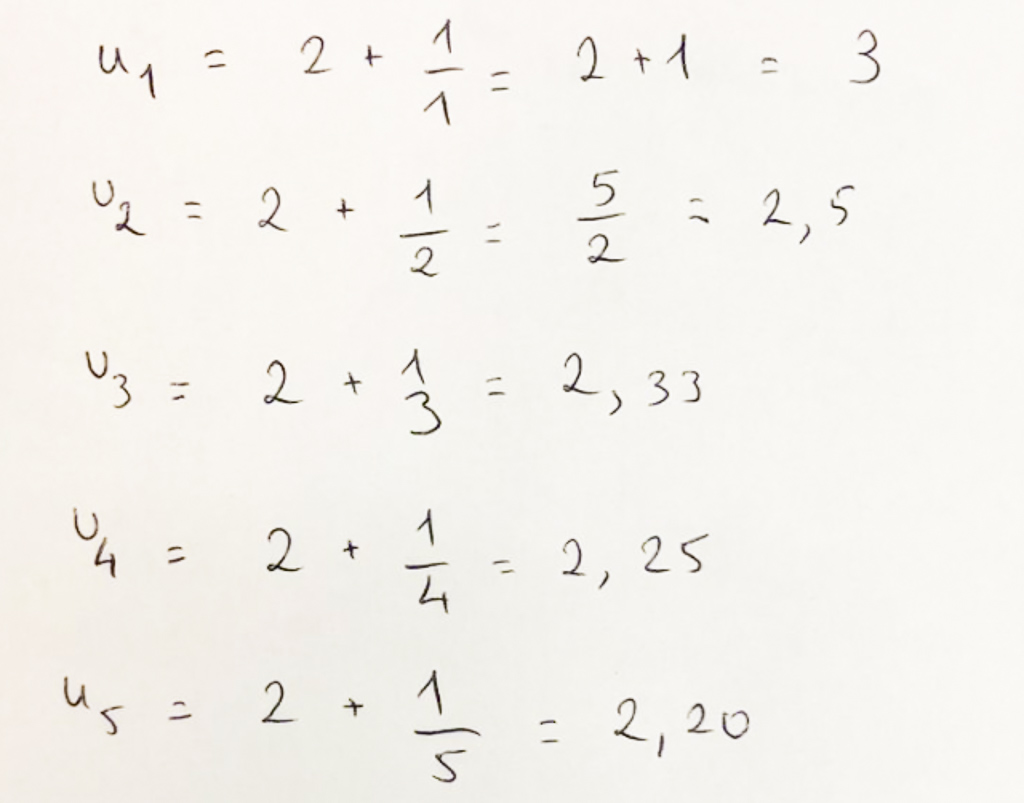 u₁ = 2 + 1/1 = 2 + 1 = 3
u₂ = 2 + 1/2 = 5/2 = 2,5
u₃ = 2 + 1/3 = 2,33
u₄ = 2 + 1/4 = 2,25
u₅ = 2 + 1/5 = 2,20